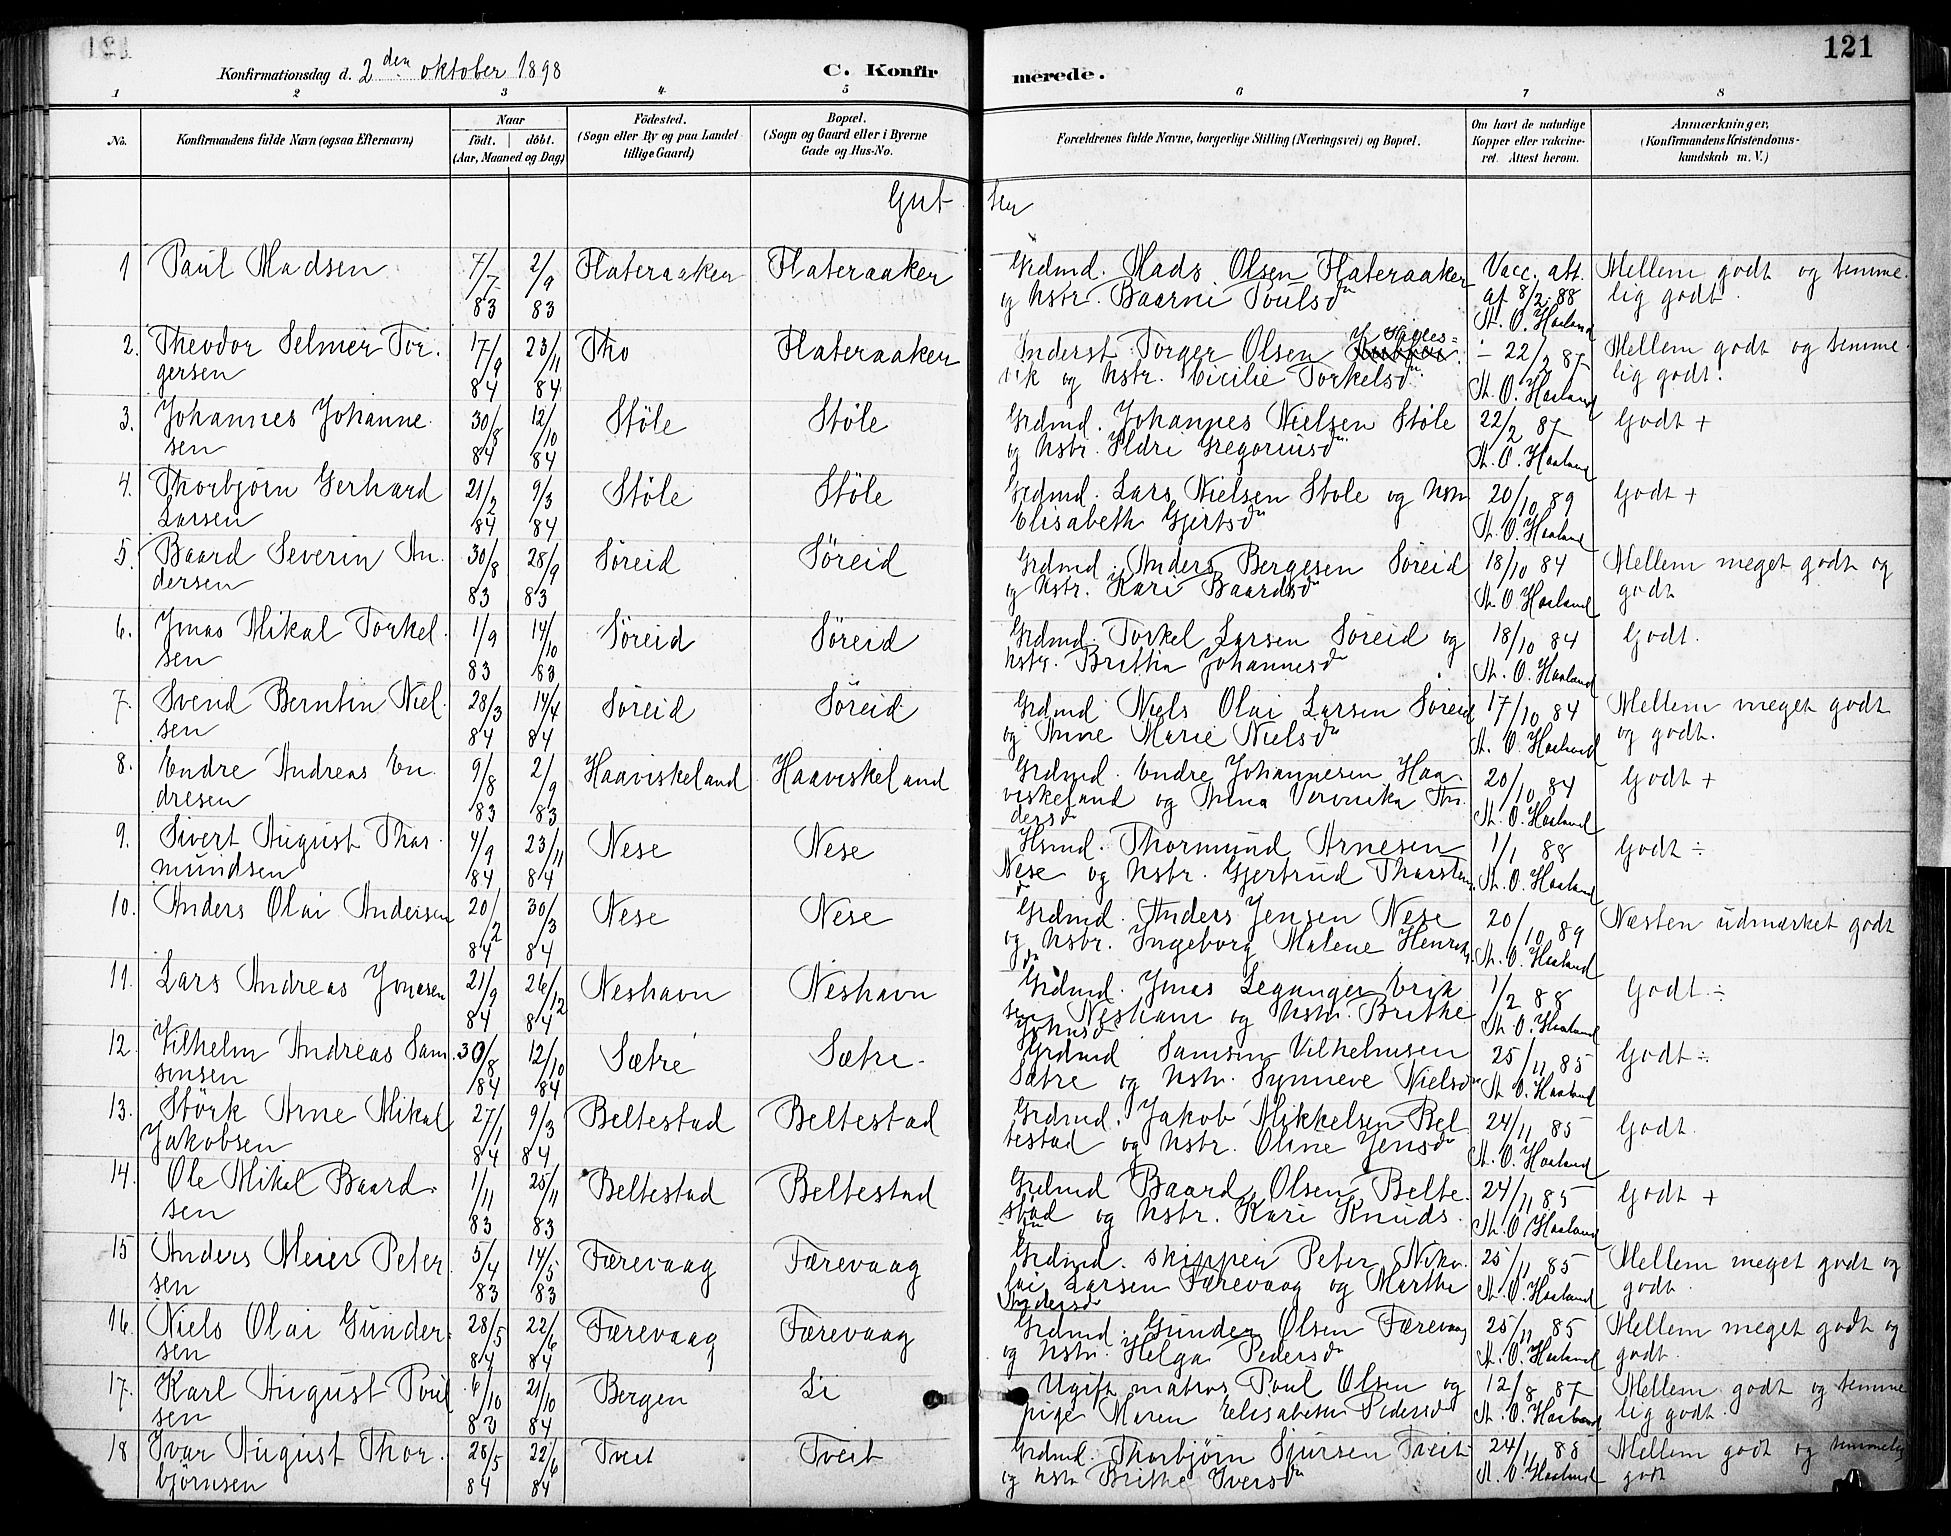 121
Konfirmationsdag d. 2den oktober 1898
C. Konfirmerede.
1 2 3 4 5 6 7 8
No.
Konfirmandens fulde Navn (ogsaa Efternavn)
Naar
født. | döbt.
(Aar, Maaned og Dag)
Födested.
(Sogn eller By og paa Landet
tillige Gaard)
Bopæl.
(Sogn og Gaard eller i Byerne
Gade og Hus-No.
Forældrenes fulde Navne, borgerlige Stilling (Næringsvei) og Bopæl.
Om havt de naturlige
Kopper eller vakcine-
ret. Attest herom.
Anmærkninger,
(Konfirmandens Kristendoms-
kundskab m. V.)
Gutter
1 Paul Madsen 7/7 83 2/9 83 Flateraaker Flateraaker Grdmd. Mads Olsen Flateraaker Vacc. att. Mellem godt og temme-
og hstr. Baarni Poulsdr af 8/2 88 lig godt.
A. O. Haaland
2. Theodor Selmer Tor- 17/9 84 23/11 84 Tho Flateraaker Inderst Torger Olsen ÷ 22/2 87 Mellem godt og temme-
gersen vik og hstr. Cicilie Torkelsdr A. O. Haaland lig godt.
3. Johannes Johanne- 30/8 84 12/10 84 Støle Støle Grdmd. Johannes Nielsen Støle 22/2 87 Godt +
sen og hstr. Eldri Gregoriusdr A. O. Haaland
4. Thorbjørn Gerhard 21/2 84 9/3 84 Støle Støle Grdmd. Lars Nielsen Støle og hstr 20/10 89 Godt +
Larsen Elisabeth Gjertsdr A. O. Haaland
5. Baard Severin An- 30/8 83 28/9 83 Søreid Søreid Grdmd. Anders Bergesen Søreid 18/10 84 Mellem meget godt og
dersen og hstr. Kari Baardsdr A. O. Haaland godt
6. Jonas Mikal Torkel- 1/9 83 14/10 83 Søreid Søreid Grdmd. Torkel Larsen Søreid og 18/10 84 Godt.
sen hstr. Brithia Johannesdr A. O. Haaland
7. Svend Berntin Niel- 28/3 84 14/4 84 Søreid Søreid Grdmd Niels Olai Larsen Søreid 17/10 84 Mellem meget godt
sen og Anne Marie Nielsdr A. O. Haaland og godt.
8. Endre Andreas En- 9/8 83 2/9 83 Haaviskeland Haaviskeland Grdmd. Endre Johannesen Haa- 20/10 84 Godt +
dresen viskeland og Anna Veronika An- A. O. Haaland
dersdr
9. Sivert August Thor- 4/9 84 23/11 84 Nese Nese Hsmd. Thormund Arnesen 1/1 88 Godt ÷
mundsen Nese og hstr. Gjertrud Thorstens- A. O. Haaland
dr
10. Anders Olai Andersen 20/2 84 30/3 84 Nese Nese Grdmd. Anders Jensen Nese 20/10 89 Næsten udmærket godt
og hstr. Ingeborg Malene Henriks- A. O. Haaland
dr
11. Lars Andreas Jonasen 21/9 84 26/12 84 Neshavn Neshavn Grdmd. Jonas Leganger Erik- 1/2 88 Godt ÷
sen Neshavn og hstr. Brithe A. O. Haaland
Johnsdr
12. Vilhelm Andreas Sam- 30/8 84 12/10 84 Sætre Sætre Grdmd Samson Vilhelmsen 25/11 85 Godt ÷
sonsen Sætre og hstr. Synneve Nielsdr A. O. Haaland
13. Størk Arne Mikal 27/1 84 9/3 84 Beltestad Beltestad Grdmd. Jakob Mikkelsen Bel- 24/11 85 Godt.
Jakobsen testad og hstr. Oline Jensdr A. O. Haaland
14. Ole Mikal Baard- 1/11 83 25/11 83 Beltestad Beltestad Grdmd Baard Olsen Belte- 24/11 85 Godt +
sen stad og hstr. Kari Knuds- A. O. Haaland
dr
15 Anders Meier Peter- 5/4 83 14/5 83 Færevaag Færevaag Grdmd. skipper Peter Niko- 25/11 85 Mellem meget godt og
sen lai Larsen Færevaag og Marthe A. O. Haaland godt.
Andersdr
16. Niels Olai Gunder- 28/5 84 22/6 84 Færevaag Færevaag Grdmd. Gunder Olsen Færevaag 25/11 85 Mellem meget godt og
sen og hstr. Helga Pedersdr A. O. Haaland godt.
17. Karl August Poul- 6/10 83 21/10 84 Bergen Li Ugift matros Poul Olsen og 12/8 87 Mellem godt og temme-
sen pige Maren Elisabeth Pedersdr A. O. Haaland lig godt.
18 Ivar August Thor- 28/5 84 22/6 84 Tveit Tveit Grdmd. Thorbjørn Sjursen Tveit 24/11 88 Mellem godt og temmelig
bjørnsen og hstr Brithe Iversdr A. O. Haaland godt